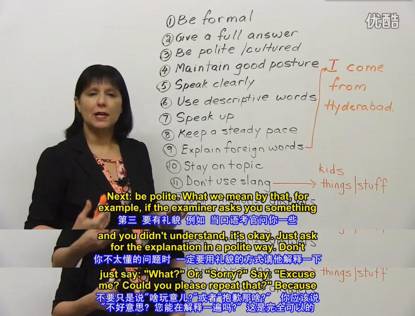 优酷
① Be formal
② Give a full answer
③ Be polite/cultured
④ Maintain good posture
⑤ Speak clearly
⑥ Use descriptive words
⑦ Speak up
⑧ Keep a steady pace
⑨ Explain foreign words
⑩ Stay on topic
⑪ Don't use slang
I come
from
Hyderabad.
kids
things/stuff
Next: be polite. What we mean by that, for
example, if the examiner asks you something
第三 要有礼貌 例如 当口语考官问你一些
and you didn't understand, it's okay. Just ask
for the explanation in a polite way. Don't
你不太懂的问题时 一定要用礼貌的方式请他解释一下
just say: "What?" Or: "Sorry?" Say: "Excuse
things/stuff
me? Could you please repeat that?" Because
不要只是说"啥玩意儿?"或者"抱歉那啥?" 你应该说
不好意思? 您能在解释一遍吗? 这是完全可以的